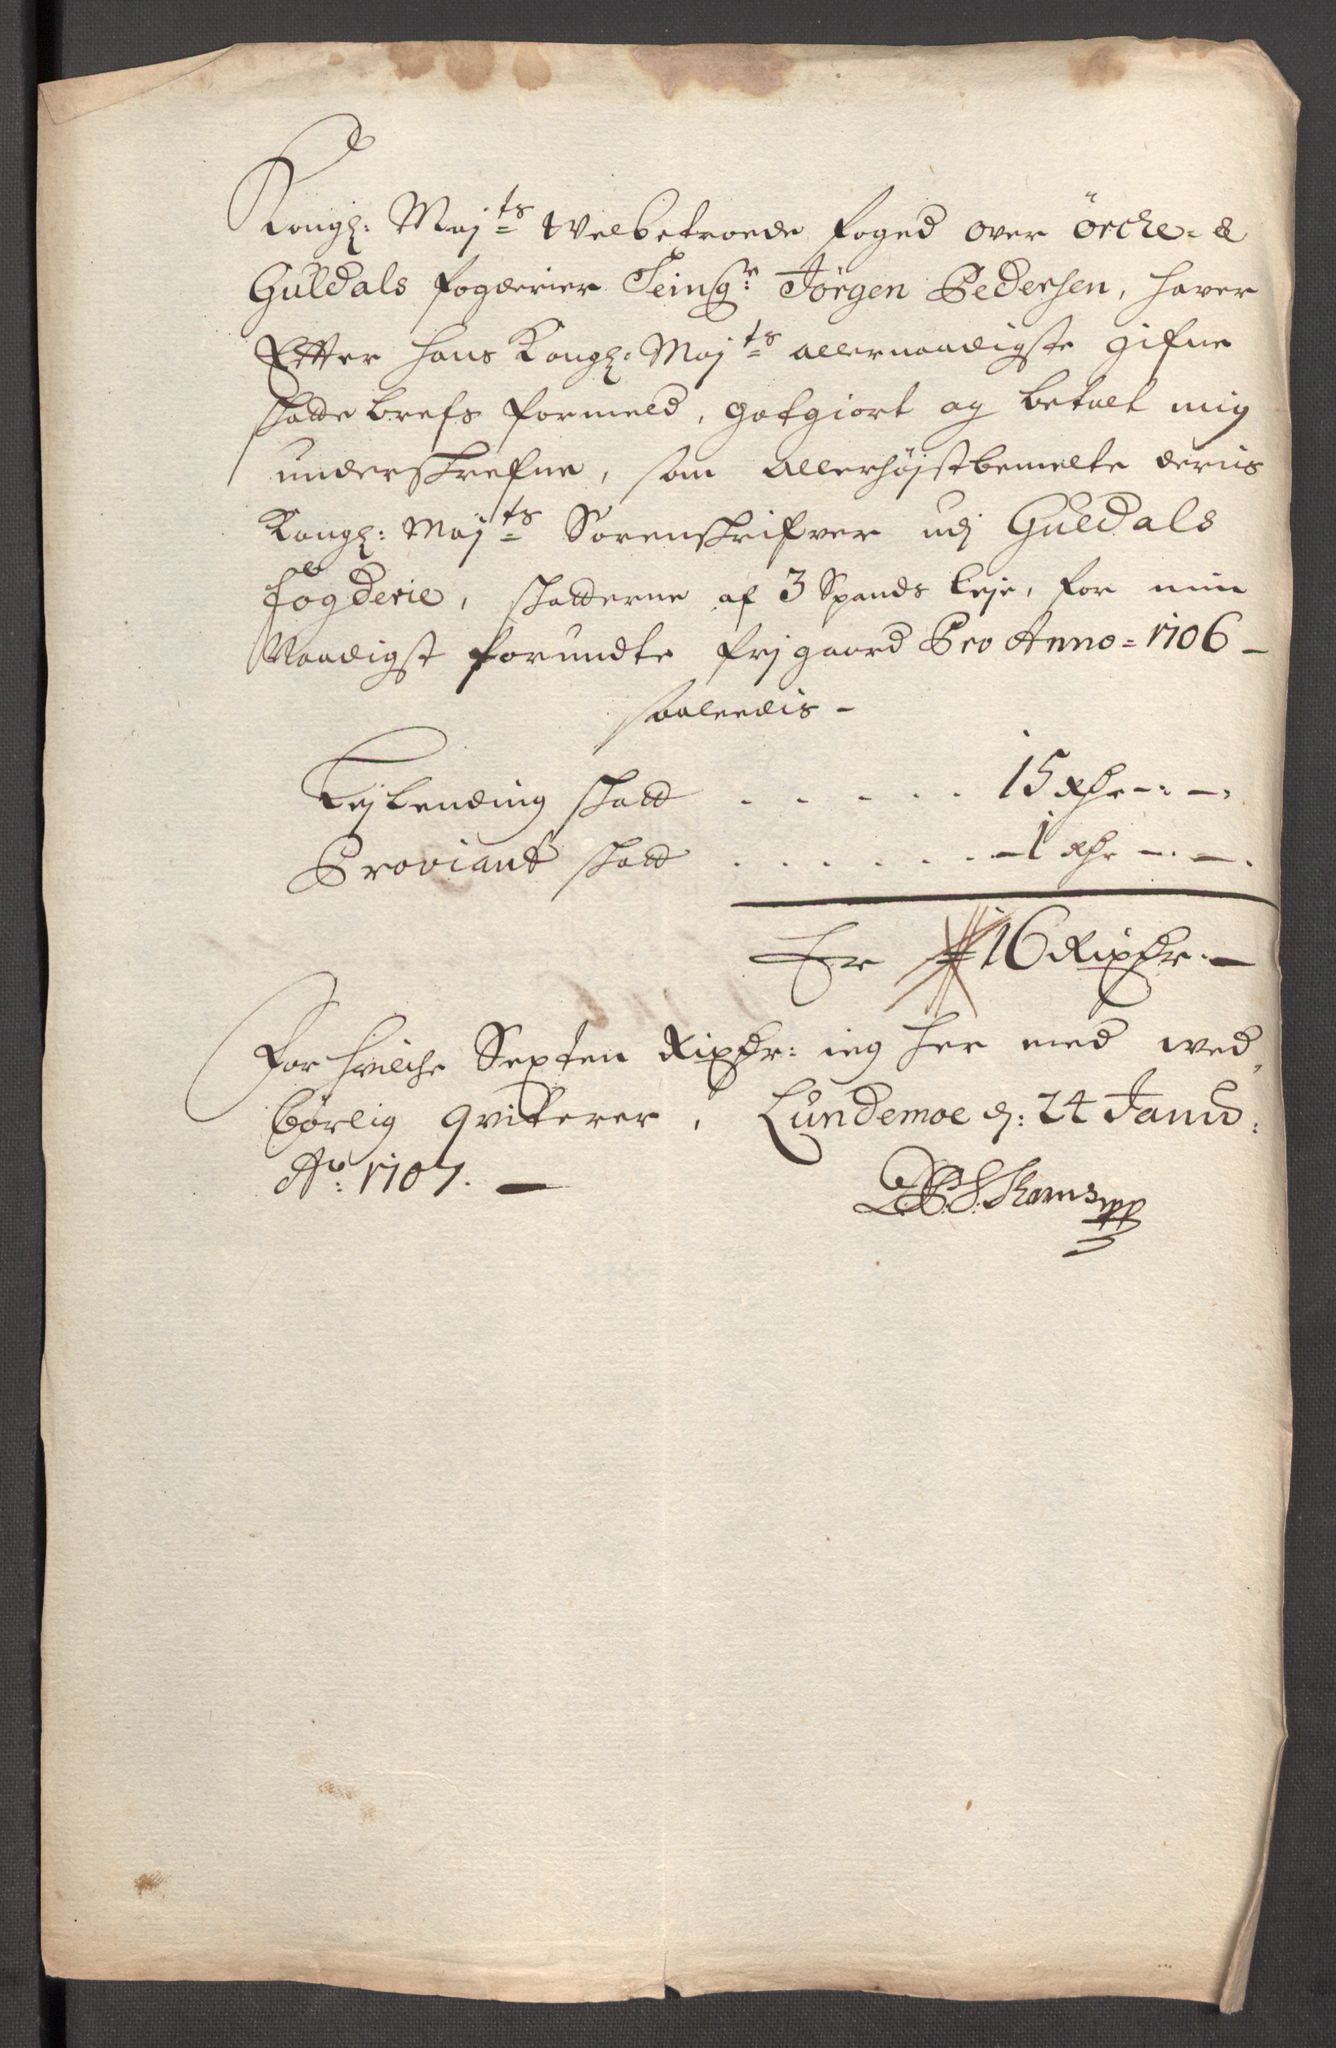 Kongl: Maj:ts Welbetroede foged over Örche- &
Guldals fogderier Seigr: Jörgen Pedersen, haver
Efter hans Kongl: Maj:ts allernaadigste gifne
skattebrefs formeld, gotgiort og betalt mig
underskrefne, som allerhöjstbemelte deris
Kongl: Maj:ts Sorenskrifver udj Guldals
fogderie, skatterne af 3 Spands leje, for min
Naadigst forundte frj gaard Pro Anno = 1706 -
saaledis -
Lejlending skatt . . . . . . 15 Rdr - : - ,
Proviant skatt . . . . . . - 1 Rdr - . - .
Er 16 Rixdr. -
For hvilche Sexten Rixdr: ieg her med wed,
börlig qviterer, Lundemoe d: 24 Janu:
Ao: 1707. -